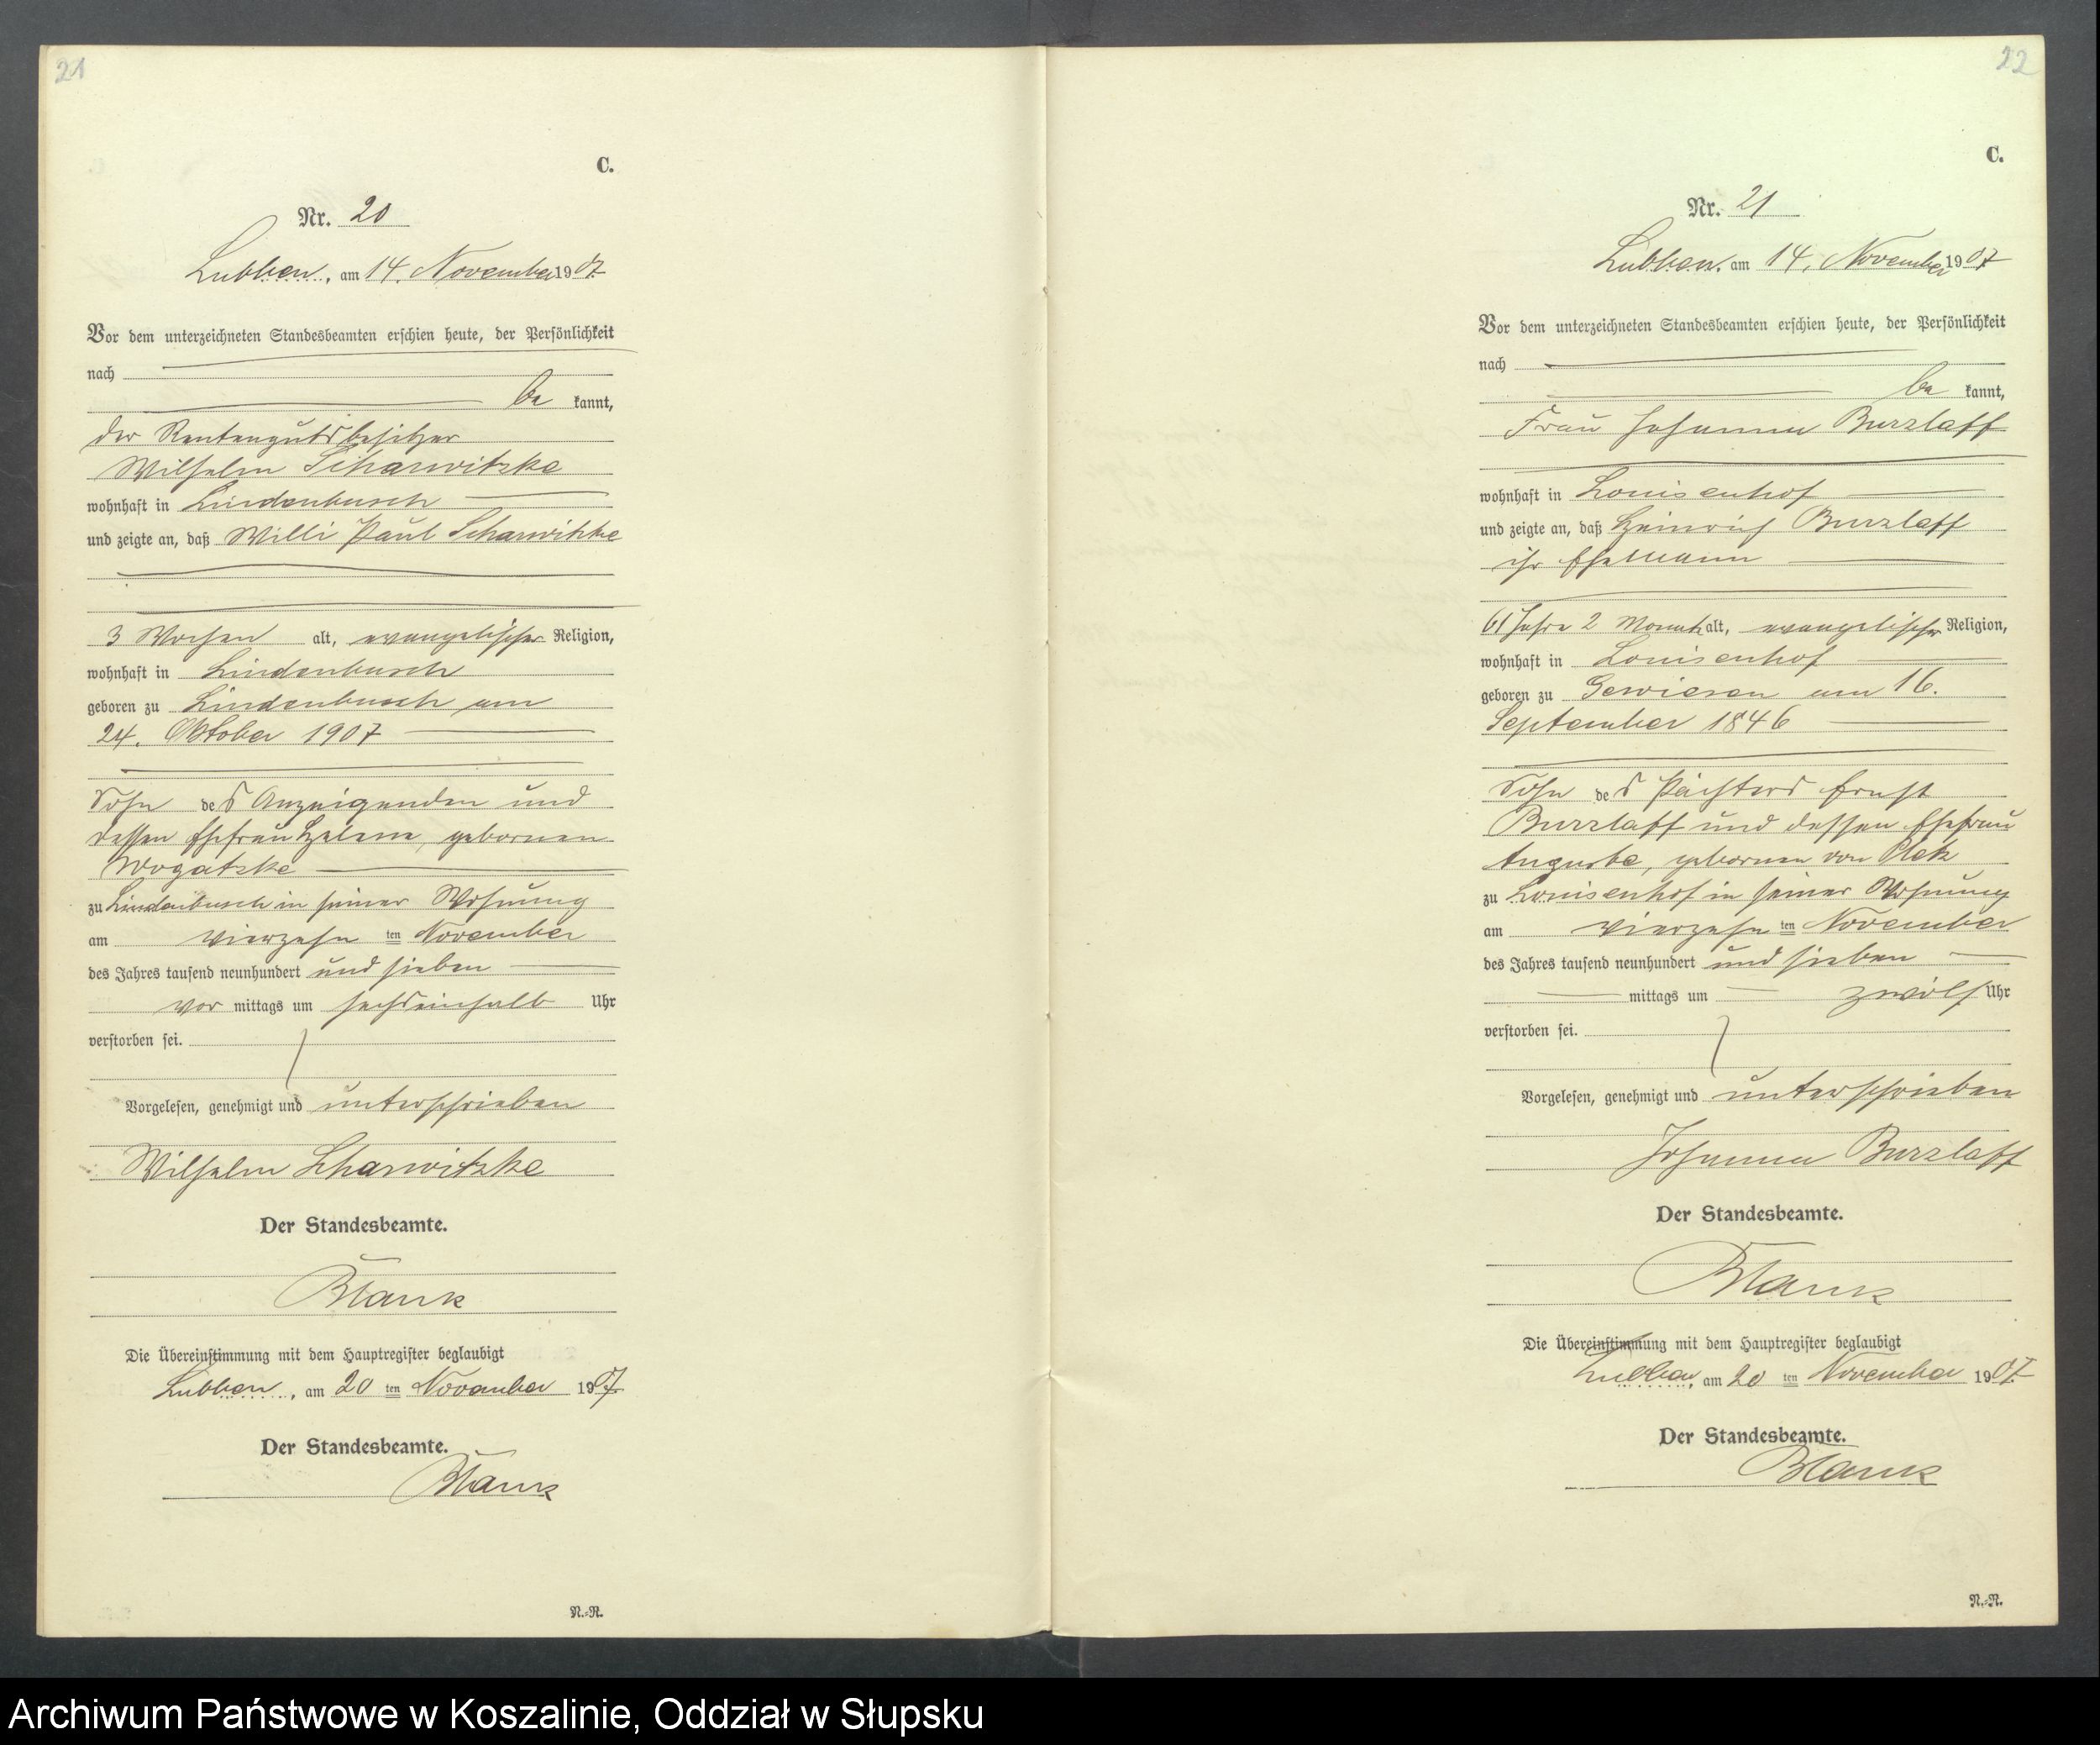 21
C.
Nr. 20
Lubben, am 14. November 1907
Vor dem unterzeichneten Standesbeamten erschien heute, der Persönlichkeit
nach
be kannt,
der Rentengutsbesitzer
Wilhelm Scharwitzke
wohnhaft in Lindenbusch
und zeigte an, daß Willi Paul Scharwitzke
3 Wochen alt, evangelischer Religion,
wohnhaft in Lindenbusch
geboren zu Lindenbusch am
24. Oktober 1907
Sohn des Anzeigenden und
dessen Ehefrau Helene, gebornen
Wogatzke
zu Lindenbusch in seiner Wohnung
am vierzehn ten November
des Jahres tausend neunhundert und sieben
vor mittags um sechseinhalb Uhr
verstorben sei.
Vorgelesen, genehmigt und unterschrieben
Wilhelm Scharwitzke
Der Standesbeamte.
Blank
Die Übereinstimmung mit dem Hauptregister beglaubigt
Lubben, am 20 ten November 1907.
Der Standesbeamte.
Blank
N.=R.
22
C.
Nr. 21
Lubben, am 14. November 1907
Vor dem unterzeichneten Standesbeamten erschien heute, der Persönlichkeit
nach
be kannt,
Frau Johanna Burzlaff
wohnhaft in Louisenhof
und zeigte an, daß Heinrich Burzlaff
ihr Ehemann
61 Jahre 2 Monat alt, evangelischer Religion,
wohnhaft in Louisenhof
geboren zu Gewiesen am 16.
September 1846
Sohn des Pächters Ernst
Burzlaff und dessen Ehefrau
Auguste, gebornen von
zu Louisenhof in seiner Wohnung
am vierzehn ten November
des Jahres tausend neunhundert und sieben
mittags um zwölf Uhr
verstorben sei.
Vorgelesen, genehmigt und unterschrieben
Johanna Burzlaff
Der Standesbeamte.
Blank
Die Übereinstimmung mit dem Hauptregister beglaubigt
Lubben, am 20 ten November 1907.
Der Standesbeamte.
Blank
N.=R.
Archiwum Państwowe w Koszalinie, Oddział w Słupsku